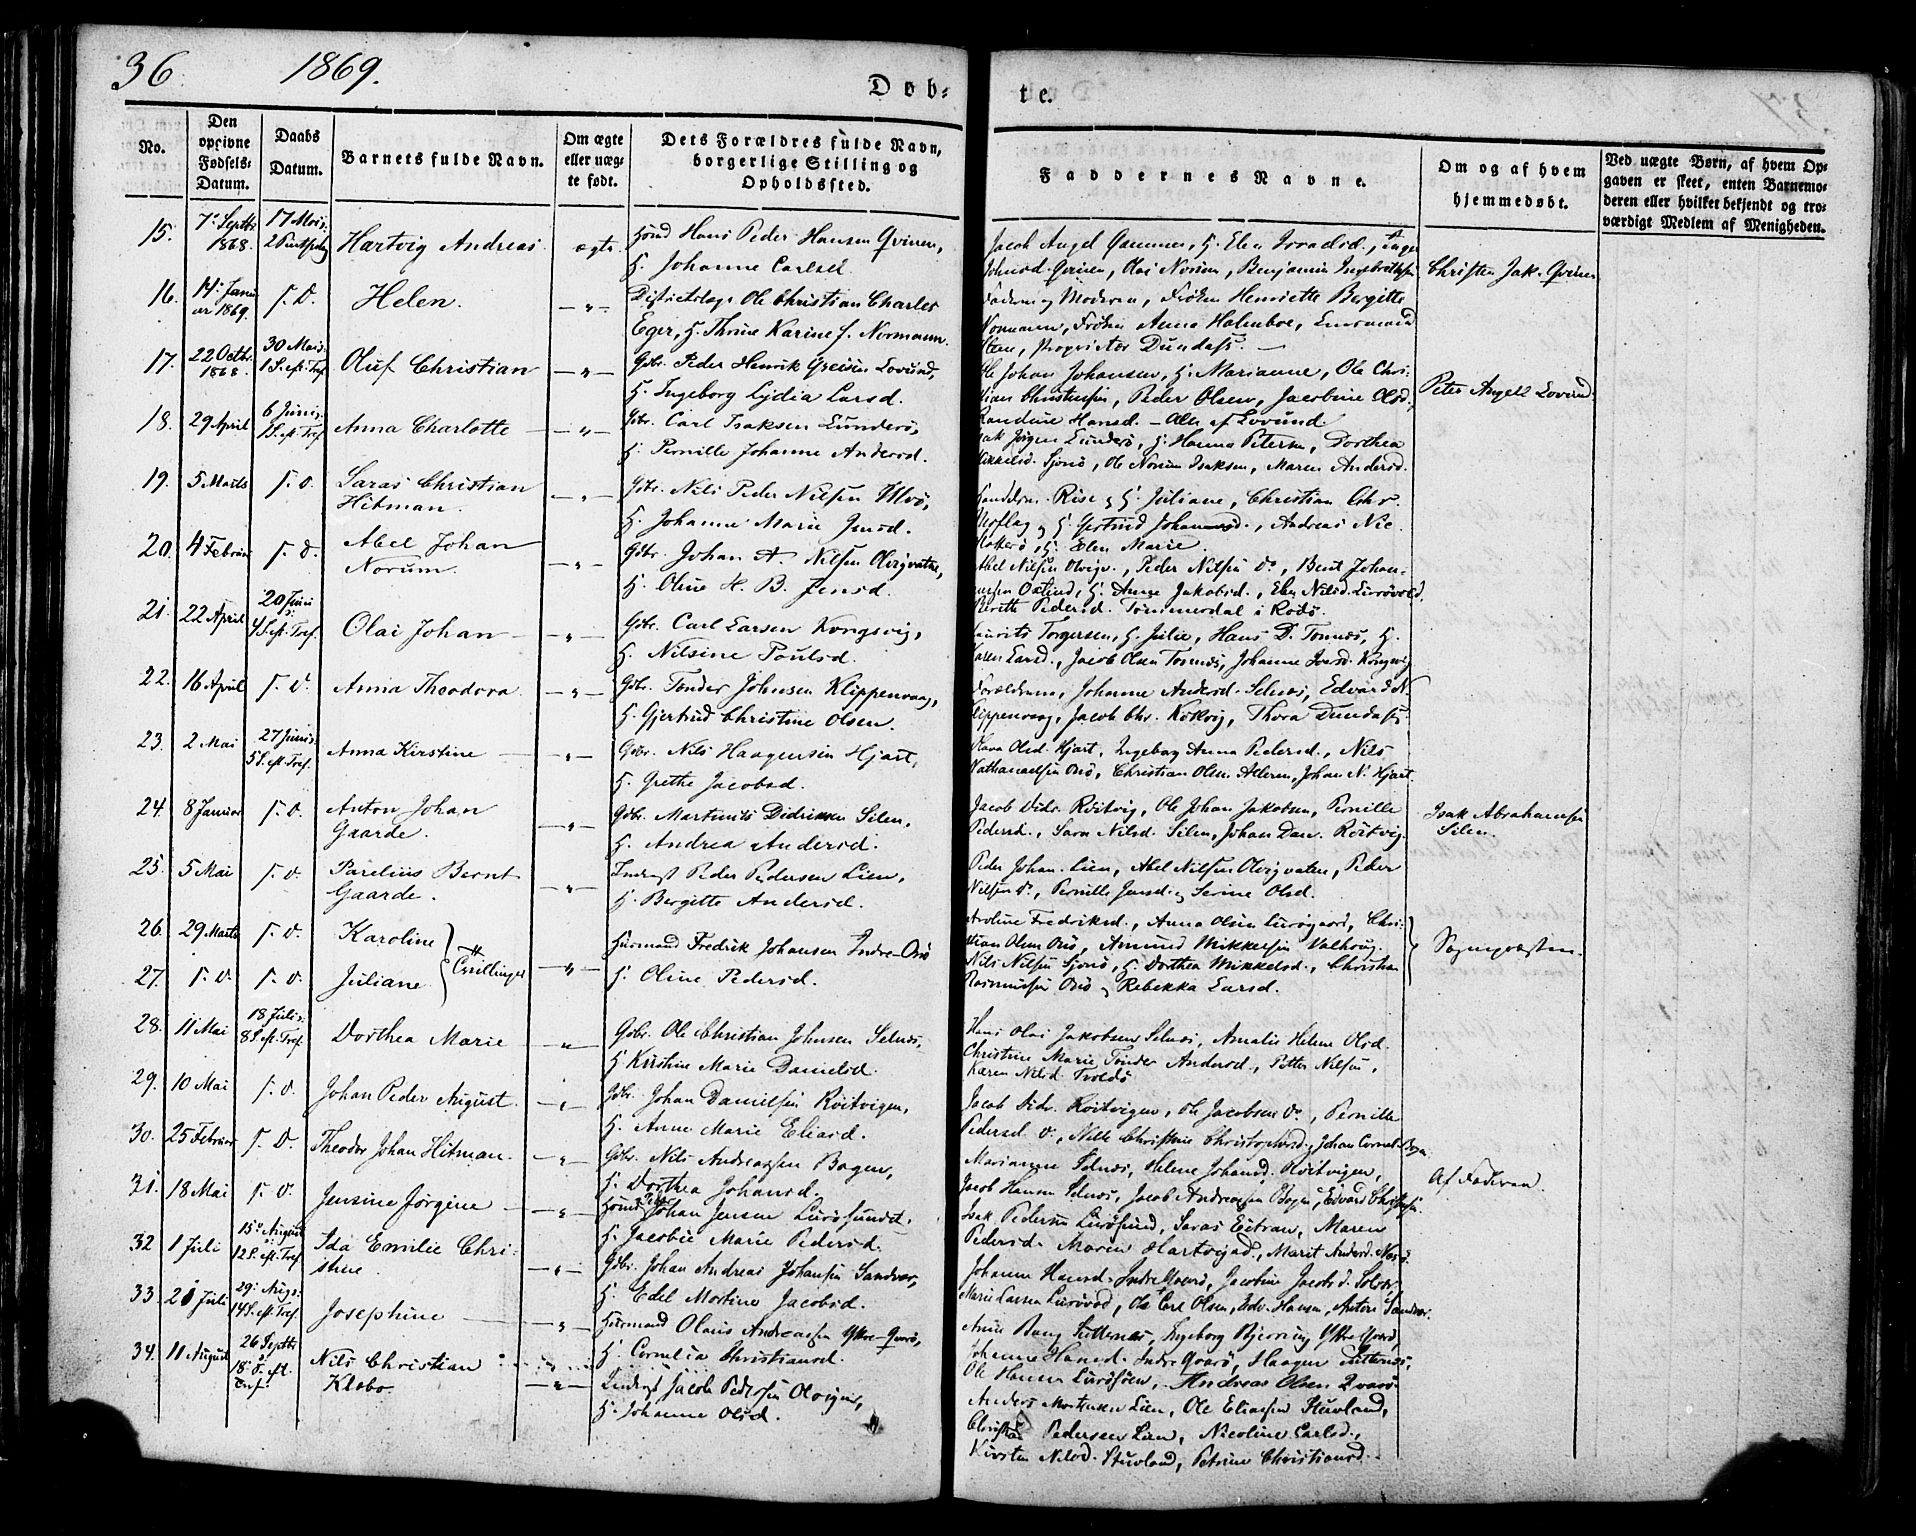 36 1869.
Døb- te.
No.
Den opgivne Fødsels-Datum.
Daabs Datum.
Barnets fulde Navn.
Om ægte eller uægte født.
Dets Forældres fulde Navn, borgerlige Stilling og Opholdssted.
Faddernes Navne.
Om og af hvem hjemmedøbt.
Ved uægte Børn, af hvem Opgaven er skeet, enten Barnemoderen eller hvilket bekjendt og troværdigt Medlem af Menigheden.
15. 7de Septbr 1868. 17 Mai Hartvig Andreas ægte Hans Peder Hansen Qvinen,
H. Johanne Carlsd.
Jacob Angel H. Elen
Olai Benjamin
Christen Jak. Qvinen
16. 14 Januar 1869. s. D. Helen. -"- Ole Christian Charles
Eger, H. Thrine Karine f. Normann.
Faderen og Moderen, Frøken Henriette Bergitte
Normann, Frøken Anna Holmboe,
Proprietær Dundass.
17. 22 Octbr. 1868. 30 Mai 1 S. eft. Tref. Oluf Christian -"- Gbr. Peder Henrik Lovund,
H. Ingeborg Lydia Larsd.
Ole Johan Johansen, H. Marianne, Ole Chri-
stian Christensen, Peder Olsen, Jacobine Olsd.,
Randine Hansd. - Alle af Lovund
Peter Angell Lovund.
18. 29 April 6 Juni Anna Charlotte -"- Gbr. Carl Isaksen Lunderø,
H. Pernille Johanne Andersd.
Isak Jørgen Lunderø, H. Hanna Petersen, Dorthea
Mikkelsd. Sjonø, Ole Norum Isaksen, Maren Andersd.
19. 5 Marts s. D. Saras Christian
Hitman. -"- Gbr. Nils Peder Nilsen
H. Johanne Marie Jensd.
Rise og H. Juliane, Christian Chr.
og H. Gertrud Andreas Nic.
H. Elen Marie.
20. 4 Februar s. D. Abel Johan
Norum. -"- Gbr. Johan A. Nilsen Olvigvatne,
H. Oline H. B. Jensd.
Abel Nilsen Olvigv., Peder Nilsen Do, Bent Johan-
H. Anne Jakobsd., Elen Nilsd. Lurøvold,
Berith Pedersd. Tømmerdal i Rødø.
21. 22 April 20 Juni 4 S. eft. Tref. Olai Johan -"- Gbr. Carl Larsen Kongsvig,
H. Nilsine Poulsd.
Laurits Torgersen, H. Julie, Hans D. Tonnes, H.
Karen Larsd., Jacob Olsen Tonnes, Johanne Iversd. Kongsvig
22. 16 April s. D. Anna Theodora. -"- Gbr. Tønder Johnsen Klippenvaag,
H. Gjertrud Christine Olsen.
Forældrene, Johanne Andersd. Selnæs, Edvard N.
Klippenvaag, Jacob Chr. Kokvig, Thora Dundass.
23. 2 Mai 27 Juni 5 S. eft. Tref. Anna Kirstine -"- Gbr. Nils Haagensen Hjart,
H. Grethe Jacobsd.
Olsd. Hjart, Ingeborg Anna Pedersd., Nils
Nathanaelsen Onø, Christian Olsen Alderen, Johan N. Hjart
24. 8 Januar s. D. Anton Johan
Gaarde. -"- Gbr. Martinus Didriksen Silen,
H. Andrea Andersd.
Jacob Didr. Røitvig, Ole Johan Jakobsen, Pernille
Pedersd., Sara Nilsd. Silen, Johan Dan. Røitvig.
Isak Abrahamsen
Silen.
25. 5 Mai s. D. Parelius Bernt
Gaarde. -"- Peder Pedersen Lien,
H. Bergitte Andersd.
Peder Johan. Lien, Abel Nilsen Olvigvatne, Peder
Nilsen Do, Pernille Jensd. og Serine Olsd.
26. 29 Marts s. D. Karoline
Tvillinger -"- Huusmand Fredrik Johansen Indre-Onø
H. Oline Pedersd.
Karoline Fredriksd., Anna Olsen Lurøgaard, Chri-
stian Olsen Onø, Amund Mikkelsen Valhoug.
Sognepræsten.
27. s. D. s. D. Juliane
Nils Nilsen Sjonø, H. Dorthea Mikkelsd., Christian
Rasmussen Onø og Rebekka Larsd.
28. 11 Mai 18 Juli 8 S. eft. Tref. Dorthea Marie -"- Gbr. Ole Christian Johnsen Selnæs,
H. Kirstine Marie Danielsd.
Hans Olai Jakobsen Selnæs, Amalie Helene Olsd.
Christine Marie Tønder Andersd., Petter Nilsen,
Karen Nilsd.
29. 10 Mai s. D. Johan Peder August. -"- Gbr. Johan Danielsen Røitvigen,
H. Anne Marie Eliasd.
Jacob Didr. Røitvigen, Ole Jacobsen Do, Pernille
Pedersd. Do, Johan Cornel.
30. 25 Februar s. D. Theodor Johan Hitman. -"- Gbr. Nils Andreassen Bogen,
H. Dorthea Johansd.
Marianne Selnæs, Helene Johansd. Røitvigen,
Jacob Hansen Selnæs, Jacob Andreassen Bogen, Edvard
Af Faderen.
31. 18 Mai s. D. Jensine Jørgine -"- Peder Johan Jensen Lurøsundet,
H. Jacobie Marie Pedersd.
Isak Pedersen Lurøsund, Saras Maren
Pedersd. Maren Hartvigsd., Marit Andersd.
32 1 Juli 15 August 12 S. eft. Tref. Ida Emilie Chri-
stine -"- Gbr. Johan Andreas Johansen Sandvær,
H. Edel Martine Jacobsd.
Johanne Hansd. Jacobine Jacobsd.
Marie Larsen Lurøvold, Ole Carl Olsen, Edv. Hansen, Anton Sandvær.
33. 21 Juli 29 Aug. 14 S. eft. Tref. Josephine -"- Huusmand Olaus Andreassen Yttre-Qvarø,
H. Cornelia Christiansd.
Anne Bang Ingeborg Yttre Qvarø,
Johanne Hansd. Indre Qvarø, Haagen
Ole Hansen Andreas Olsen Qvarø.
34. 11 August 26 Septbr 18 S. eft. Tref. Nils Christian
Klæbo. -"- Jacob Pedersen Olvigen,
H. Johanne Olsd.
Anders Mortensen Lien, Ole Eliassen Stuvland,
Christian Pedersen Lien, Nicoline Carlsd.,
Kirsten Nilsd. Stuvland, Petrine Christiansd.